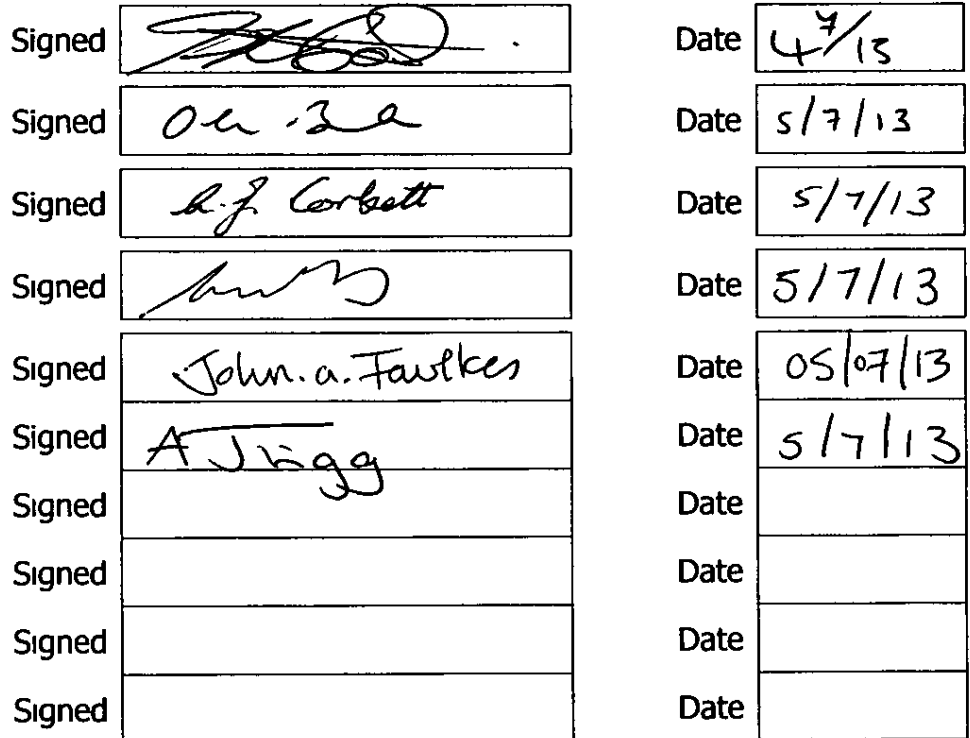 Signed Date 4/7/13
Signed Date 5/7/13
Signed A.J. Corbett Date 5/7/13
Signed Date 5/7/13
Signed John.a.Faulkes Date 05/07/13
Signed A Jrigg Date 5/7/13
Signed Date
Signed Date
Signed Date
Signed Date